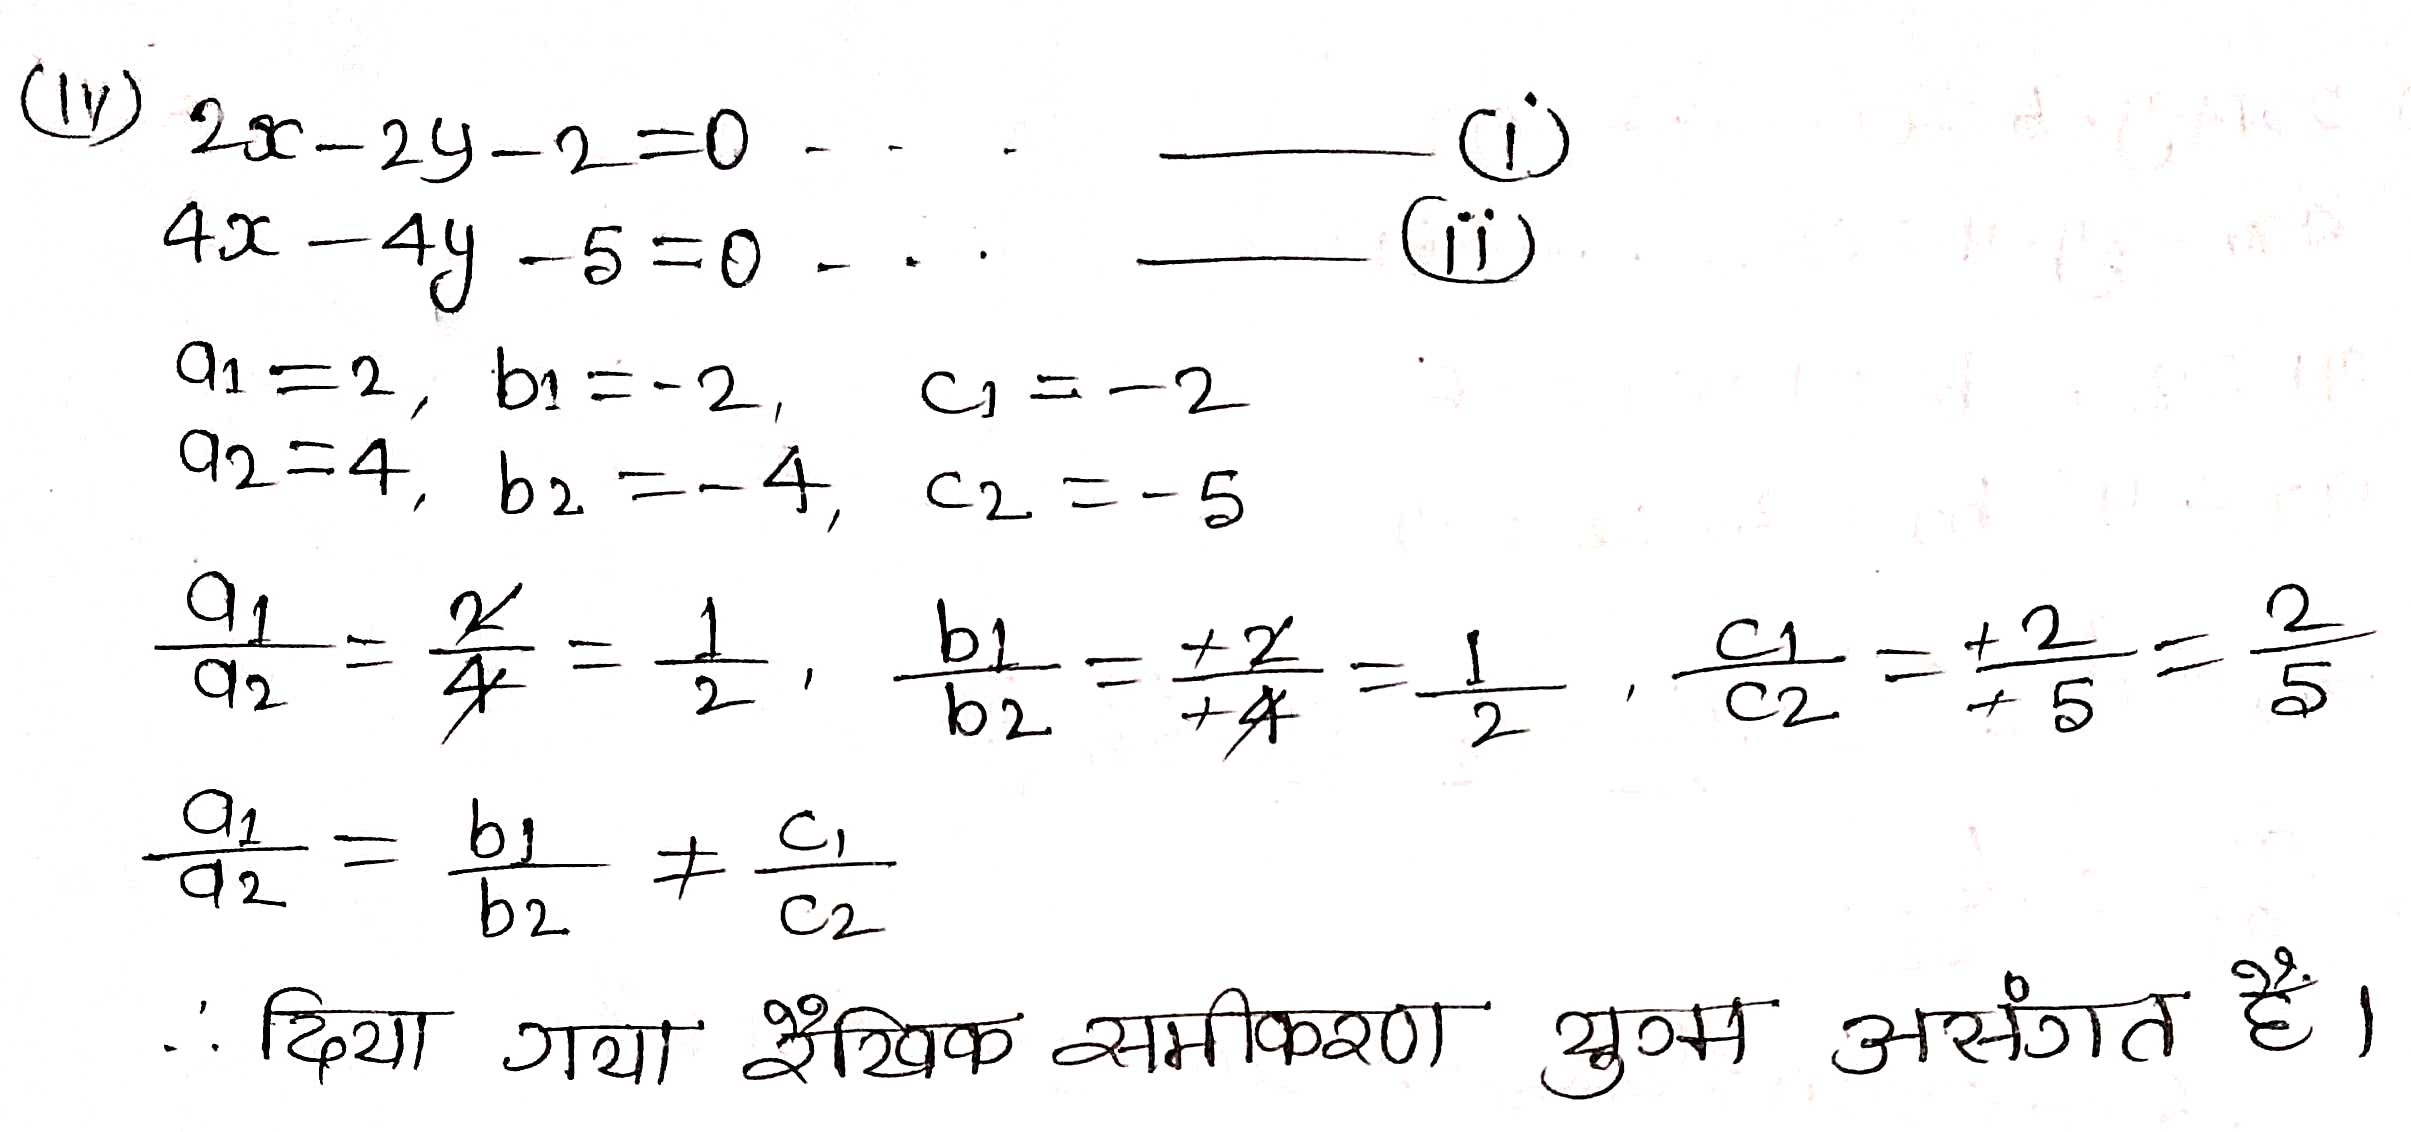 (iv) 2x - 2y - 2 = 0 - - - ——— (i)
4x - 4y - 5 = 0 - . . ——— (ii)
a1 = 2, b1 = -2, c1 = -2
a2 = 4, b2 = -4, c2 = -5
a1/a2 = 2/4 = 1/2, b1/b2 = +2/+4 = 1/2, c1/c2 = +2/+5 = 2/5
a1/a2 = b1/b2 ≠ c1/c2
∴ दिया गया रैखिक समीकरण युग्म असंगत हैं।